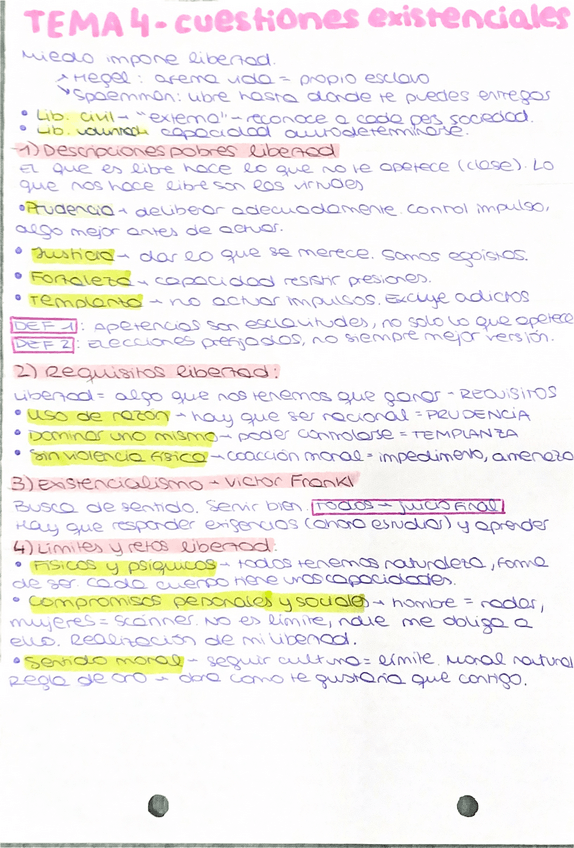 TEMA 4 - cuestiones existenciales
Miedo impone libertad.
Hegel: aferra vida = propio esclavo
Spaemman: libre hasta donde te puedes entregar
• Lib. civil → "externo" → reconoce a cada pers sociedad.
• Lib. capacidad autodeterminarse.
1) Descripciones pobres libertad
El que es libre hace lo que no te apetece (clase). Lo
que nos hace libre son las virtudes
• Prudencia → deliberar adecuadamente. control impulso,
algo mejor antes de actuar.
• Justicia → dar lo que se merece. Somos egoistas.
• Fortaleza → capacidad resistir presiones.
• Templanza → no actuar impulsos. Excluye adictos
DEF 1: apetencias son esclavitudes, no solo lo que apetece
DEF 2: Elecciones prefijadas, no siempre mejor versión.
2) Requisitos libertad:
Libertad = algo que nos tenemos que ganar - REQUISITOS
• Uso de razón → hay que ser racional = PRUDENCIA
• Dominar uno mismo → poder controlarse = TEMPLANZA
• Sin violencia física → coacción moral = impedimento, amenaza
3) Existencialismo → Victor Frankl
Busca de sentido. Servir bien. Todos → juicio final
Hay que responder exigencias (ahora estudiar) y aprender
4) Límites y retos libertad:
• Físicos y psíquicos → todos tenemos naturaleza, forma
de ser. Cada cuerpo tiene unas capacidades.
• Compromisos personales y sociales → hombre = radar,
mujeres = scanner. No es límite, nadie me obliga a
ello. Realización de mi libertad.
• Sentido moral → seguir cultura = límite. Moral natural
Regla de oro → obra como te gustaría que contigo.